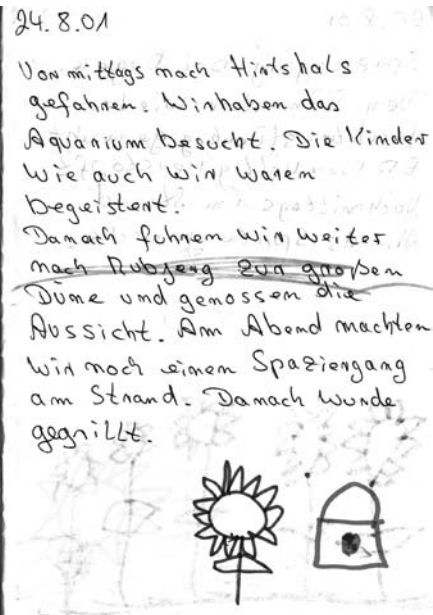 24.8.01
Vormittags nach Hirtshals
gefahren. Wir haben das
Aquarium besucht. Die Kinder
wie auch wir waren
begeistert.
Danach fuhren wir weiter
nach Rubjerg zur großen
Düne und genossen die
Aussicht. Am Abend machten
wir noch einen Spaziergang
am Strand. Danach wurde
gegrillt.